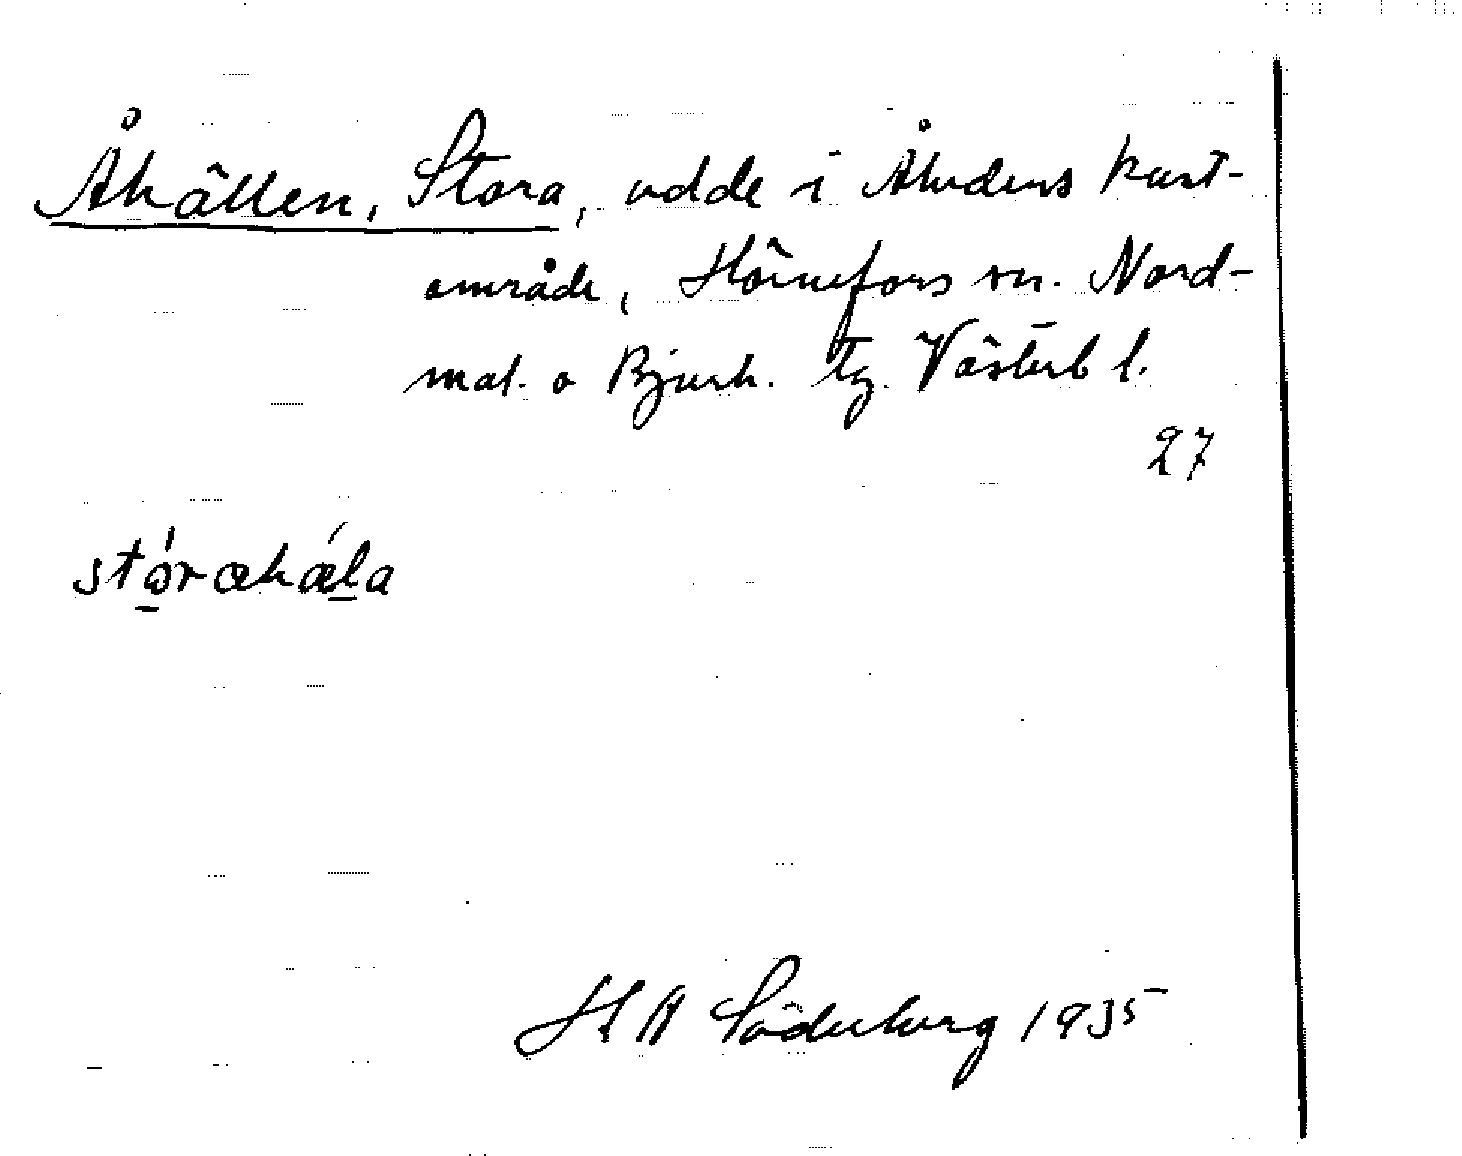 Åkällen, Stora, udde i Åhedens kust-
område, Hörnefors sn. Nord-
mal. o Bjurh. tg. Västerb l.
27
stóraká̱la
H A Söderberg 1935